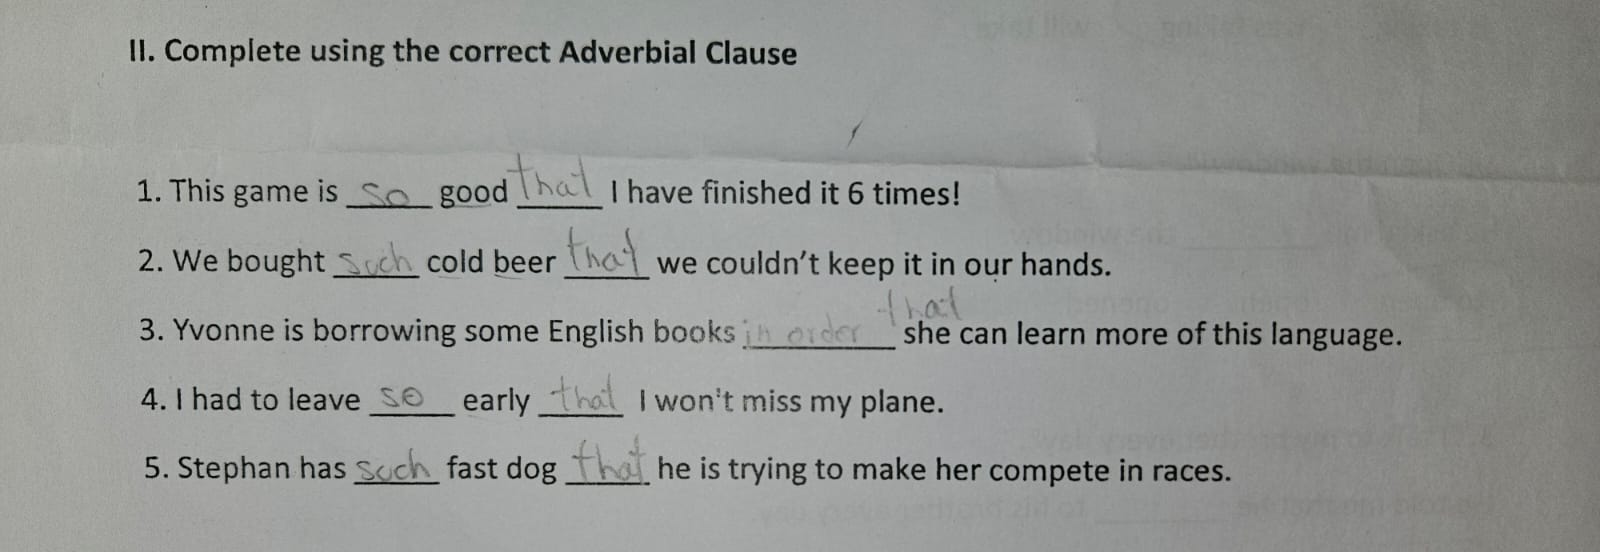 II. Complete using the correct Adverbial Clause
1. This game is so good that I have finished it 6 times!
2. We bought such cold beer that we couldn't keep it in our hands.
3. Yvonne is borrowing some English books in order that she can learn more of this language.
4. I had to leave so early that I won't miss my plane.
5. Stephan has such fast dog that he is trying to make her compete in races.